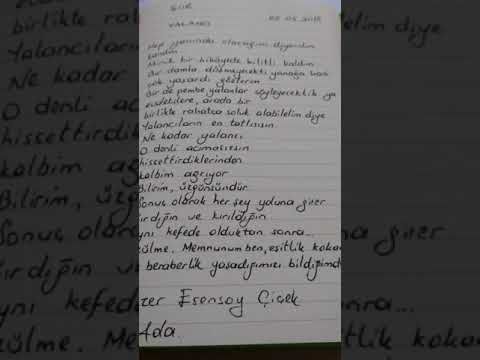 ŞİİR
YALANCI 02.05.2018
Hep yanında olacağım diyordun
kandım
bir hikâyede kilitli kaldım
Bir damla düşmeyecekti yanağa hani
çok yaşardı gözlerim
Bir de pembe yalanlar söyleyecektik ya
arada bir
birlikte rahatça soluk alabilelim diye
Yalancıların en tatlısısın
Ne kadar yalancı
O denli acımasızsın
hissettirdiklerinden
kalbim ağrıyor
Bilirim, üzgünsündür
Sonuç olarak her şey yoluna girer
kırdığın ve kırıldığın
aynı kefede olduktan sonra...
üzülme. Memnunum ben, eşitlik kokan
beraberlik yaşadığımızı bildiğimden
Esensoy Çiçek
Ada